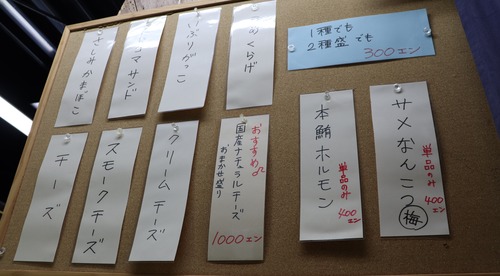 1種でも
2種盛でも
300エン
くらげ
いぶりがっこ
さしみかまぼこ
サメなんこつ 梅
単品のみ
400エン
本鮪ホルモン
単品のみ
400エン
おすすめ
国産ナチュラルチーズ
おまかせ盛り
1000エン
クリームチーズ
スモークチーズ
チーズ